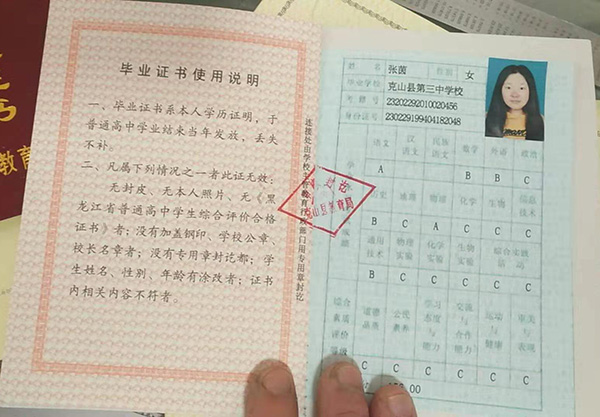 毕业证书使用说明
一、毕业证书系本人学历证明，于
普通高中学业结束当年发放，丢失
不补。
二、凡属下列情况之一者此证无效：
无封皮、无本人照片、无《黑
龙江省普通高中学生综合评价合格
证书》者；没有加盖钢印、学校公章、
校长名章者；没有专用章封讫都；学
生姓名、性别、年龄有涂改者；证书
内相关内容不符者。
连接处由学校主管教育行政部门用专用章封讫
封讫
克山县教育局
姓名 张茵 性别 女
毕业学校 克山县第三中学校
考籍号 23202292010020456
身份证号 230229199404182048
语文 汉语文 民族语文 数学 外语 政治
A B B C
历史 地理 物理 化学 生物 信息技术
B C A C C C
通用技术 物理实验 化学实验 生物实验 综合实践活动
B C C C C
综合素质评价等级
道德品质 公民素养 学习态度与能力 交流与合作能力 运动与健康 审美与表现
C C C C C C
教育